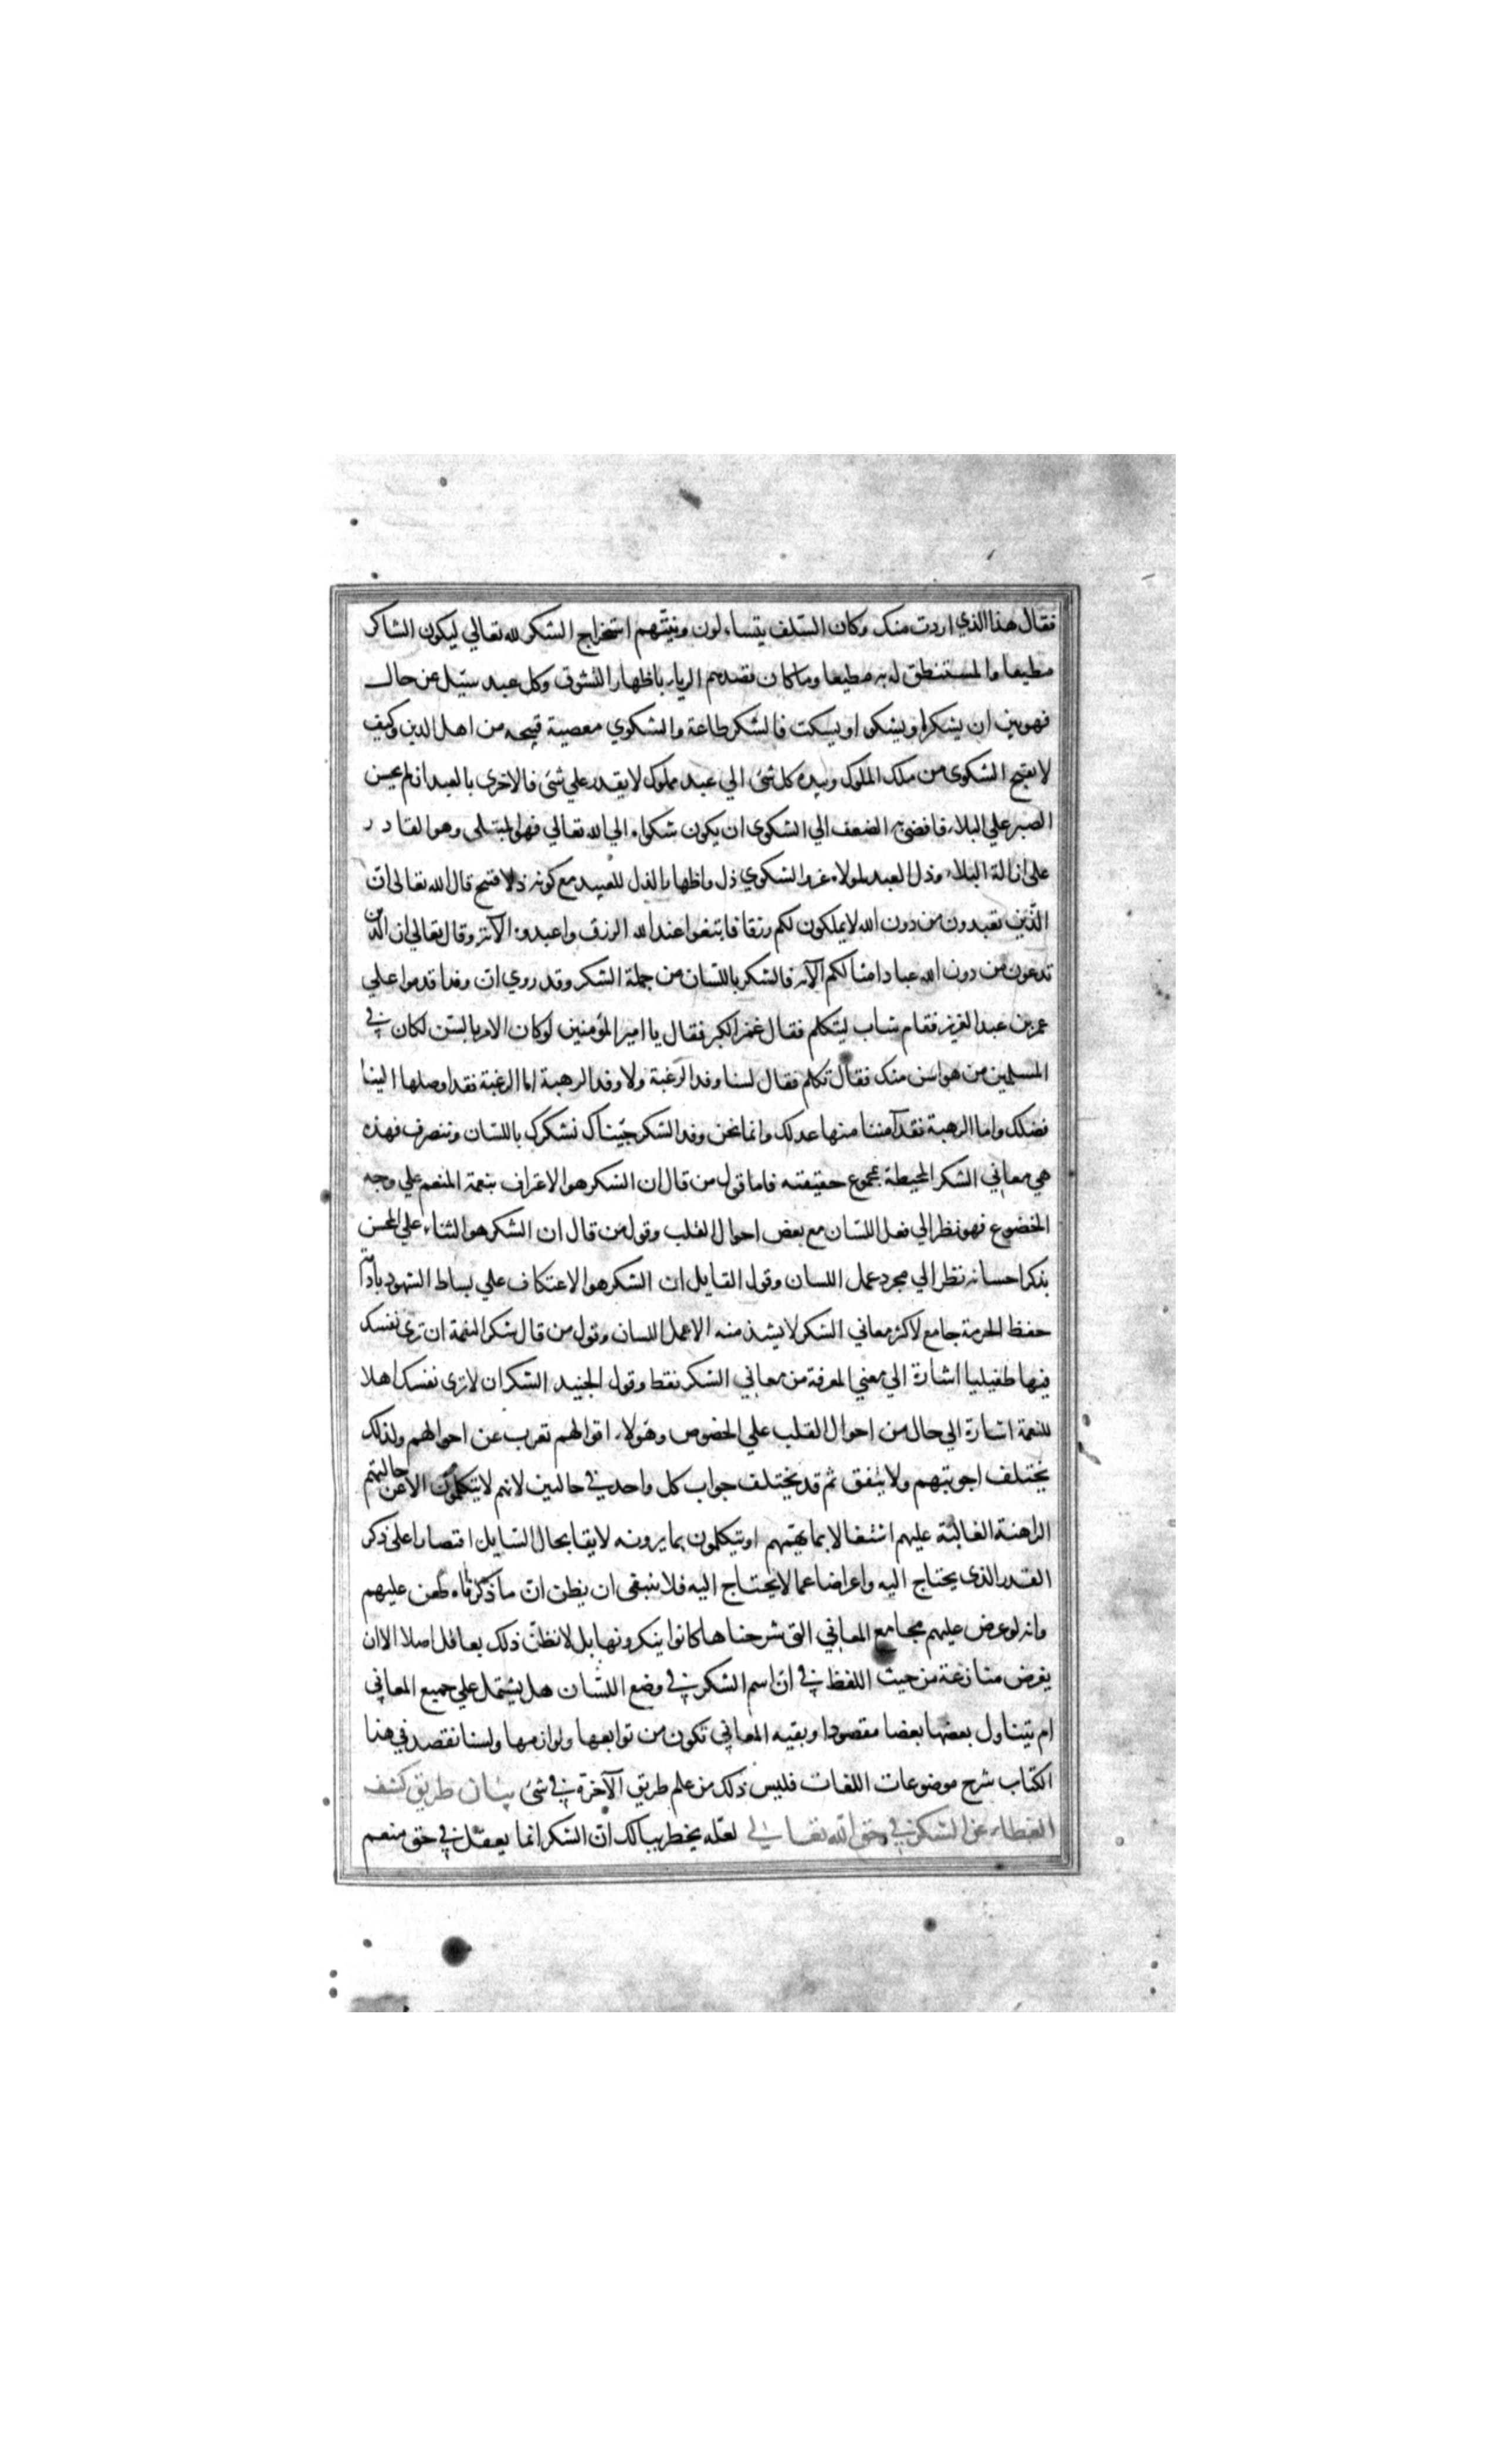 فقال هذا الذي اردت منك وكان السّلف يتساءلون ونيّتهم استخراج الشكر لله تعالي ليكون الشاكر
مطيعا والمستنطق له به مطيعا وما كان قصدهم الرياء باظهار الشوق وكل عبد سئل عن حال
فهو بين ان يشكر او يشكو او يسكت فالشكر طاعة والشكوي معصية قبيحه من اهل الدين وكيف
لا تقبح الشكوي من ملك الملوك وبيده كل شئ الي عبد مملوك لا يقدر علي شئ فالاحرى بالعبد ان لم يحسن
الصبر علي البلاء فافضي به الضعف الي الشكوي ان يكون شكواه الي الله تعالي فهو المبتلى وهو القادر
على ازالة البلاء وذل العبد لمولاه عز والشكوي ذل واظهار الذل للعبيد مع كونه ذلا قبيح قال الله تعالى انّ
الّذين تعبدون من دون الله لا يملكون لكم رزقا فابتغوا عند الله الرزق واعبدوه الآية وقال تعالي ان الذين
تدعون من دون الله عباد امثالكم الآية فالشكر باللسان من جملة الشكر وقد روي ان وفدا قدموا علي
عمر بن عبد العزيز فقام شاب ليتكلم فقال عمر الكبر فقال يا امير المؤمنين لو كان الامر بالسّن لكان في
المسلمين من هو اسن منك فقال تكلم فقال لسنا وفد الرغبة ولا وفد الرهبة اما الرغبة فقد اوصلها الينا
فضلك واما الرهبة فقد آمننا منها عدلك وانما نحن وفد الشكر جئناك نشكرك باللسان وننصرف فهذه
هي معاني الشكر المحيطة بمجموع حقيقته فاما قول من قال ان الشكر هو الاعتراف بنعمة المنعم علي وجه
الخضوع فهو نظر الي فعل اللسان مع بعض احوال القلب وقول من قال ان الشكر هو الثناء علي المحسن
بذكر احسانه نظر الي مجرد عمل اللسان وقول القايل ان الشكر هو الاعتكاف علي بساط الشهود بادامة
حفظ الحرمة جامع لاكثر معاني الشكر لا يشذ منه الا عمل اللسان وقول من قال شكر النعمة ان تري نفسك
فيها طفيليا اشارة الي معني المعرفة من معاني الشكر فقط وقول الجنيد الشكر ان لا تري نفسك اهلا
للنعمة اشارة الي حال من احوال القلب علي الخصوص وهؤلاء اقوالهم تعرب عن احوالهم ولذلك
يختلف اجوبتهم ولا يتفق ثم قد يختلف جواب كل واحد في حالين لانهم لا يتكلمون الا عن حالتهم
الراهنة الغالبة عليهم اشتغالا بما يهمهم او يتكلمون بما يرونه لايقا بحال السّايل اقتصارا على ذكر
القدر الذي يحتاج اليه واعراضا عما لا يحتاج اليه فلا ينبغي ان يظن انّ ما ذكرناه طعن عليهم
وانه لو عرض عليهم مجامع المعاني التي شرحناها كانوا ينكرونها بل لا نظنّ ذلك بعاقل اصلا الا ان
يفرض منازعة من حيث اللفظ في انّ اسم الشكر في وضع اللسان هل يشتمل علي جميع المعاني
ام يتناول بعضها بعضا مقصودا وبقيه المعاني تكون من توابعها ولوازمها ولسنا نقصد في هذا
الكتاب شرح موضوعات اللغات فليس ذلك من علم طريق الآخرة في شئ بيان طريق كشف
الغطاء عن الشكر في حق الله تعالي لعلّه يخطر ببالك انّ الشكر انما يعقل في حق منعم